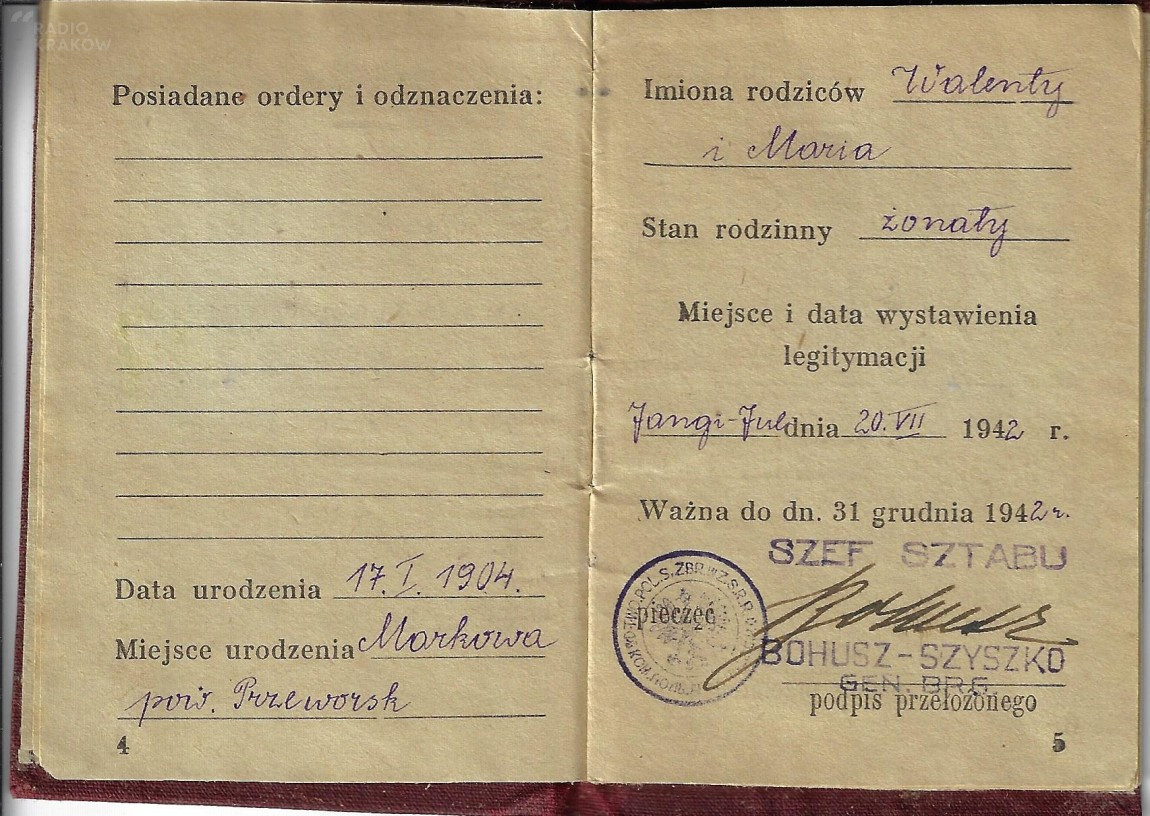 RADIO
KRAKÓW
Posiadane ordery i odznaczenia:
Data urodzenia 17.I.1904.
Miejsce urodzenia Markowa
pow. Przeworsk
4
Imiona rodziców Walenty
i Maria
Stan rodzinny żonaty
Miejsce i data wystawienia
legitymacji
Jangi-Jul dnia 20.VII 1942 r.
Ważna do dn. 31 grudnia 1942 r.
SZEF SZTABU
pieczęć
Bohusz
BOHUSZ-SZYSZKO
GEN. BRG.
podpis przełożonego
5